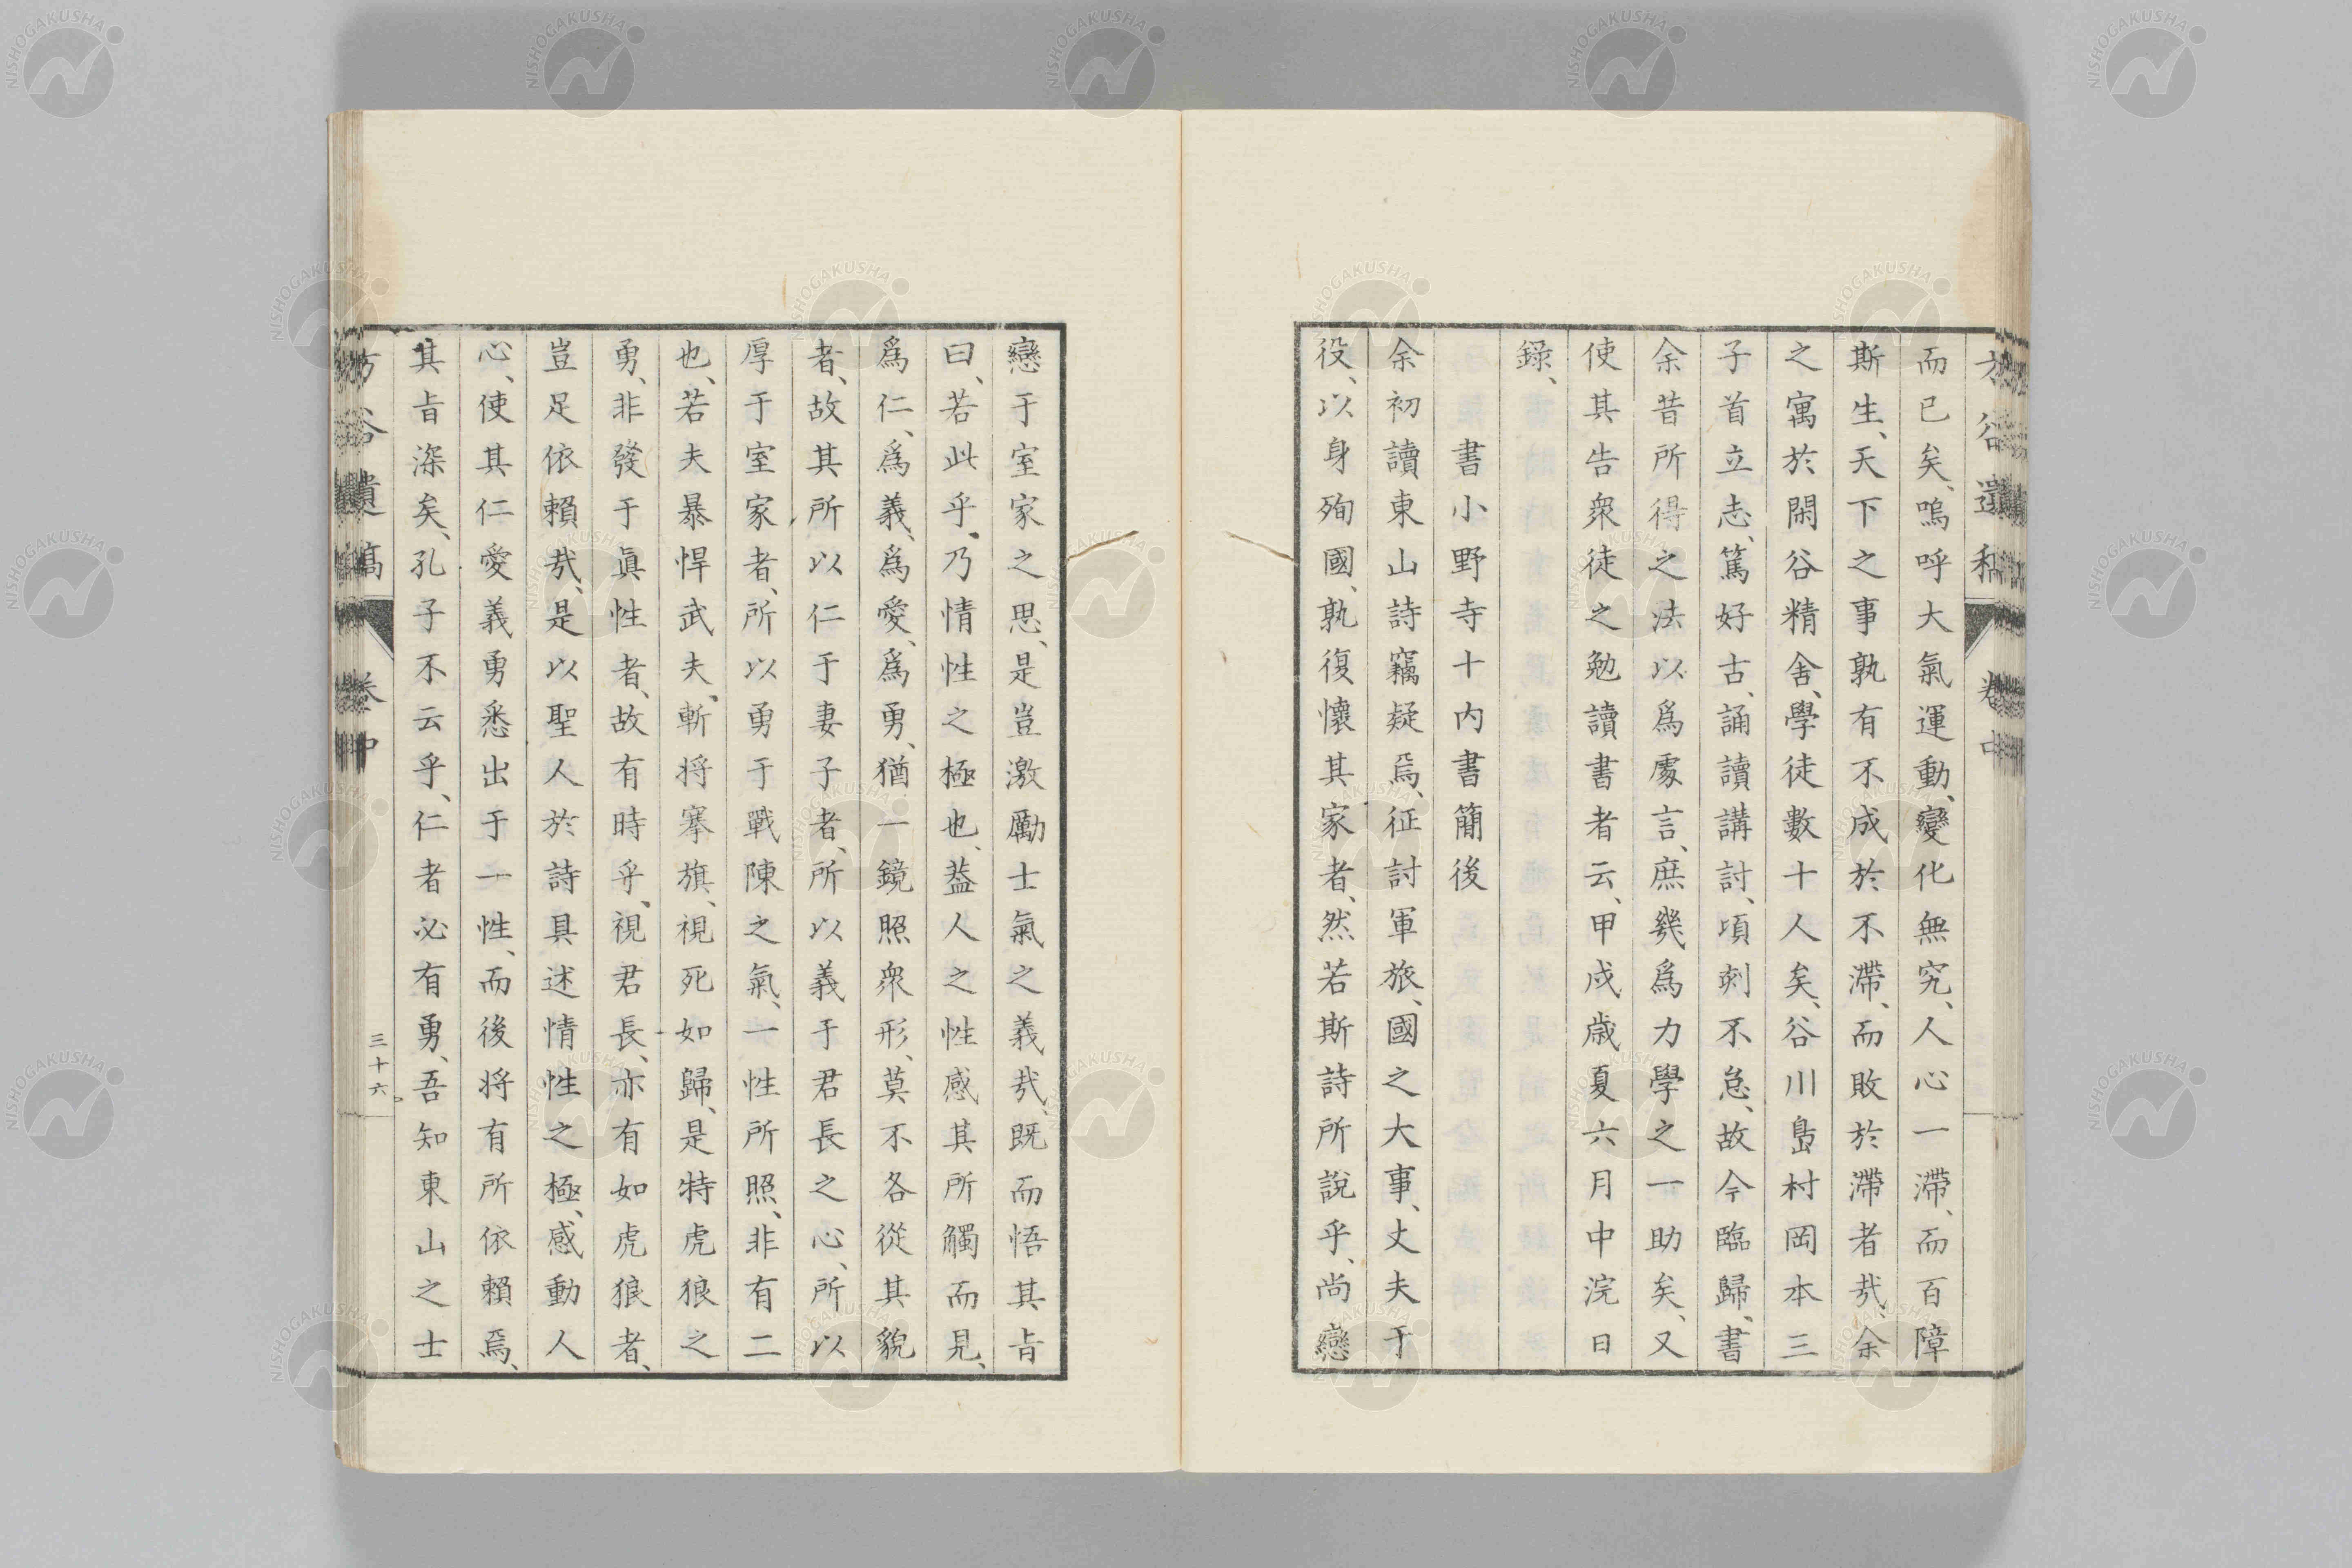 而已矣、嗚呼大氣運動、變化無究、人心一滯、而百障
斯生、天下之事孰有不成於不滯、而敗於滯者哉、余
之寓於閑谷精舍、學徒數十人矣、谷川島村岡本三
子首立志、篤好古、誦讀講討、頃刻不怠、故今臨歸、書
余昔所得之法以爲處言、庶幾爲力學之一助矣、又
使其告衆徒之勉讀書者云、甲戌歳夏六月中浣日
録、
書小野寺十内書簡後
余初讀東山詩竊疑焉、征討軍旅、國之大事、丈夫于
役、以身殉國、孰復懷其家者、然若斯詩所說乎、尚戀
戀于室家之思、是豈激勵士氣之義哉、既而悟其旨
曰、若此乎、乃情性之極也、葢人之性感其所觸而見、
爲仁、爲義、爲愛、爲勇、猶一鏡照衆形、莫不各從其貌
者、故其所以仁于妻子者、所以義于君長之心、所以
厚于室家者、所以勇于戰陳之氣、一性所照、非有二
也、若夫暴悍武夫、斬将搴旗、視死如歸、是特虎狼之
勇、非發于眞性者、故有時乎、視君長、亦有如虎狼者、
豈足依賴哉、是以聖人於詩具述情性之極、感動人
心、使其仁愛義勇悉出于一性、而後将有所依賴焉、
其旨深矣、孔子不云乎、仁者必有勇、吾知東山之士
谷遺稿 卷中
三十六
NISHOGAKUSHA